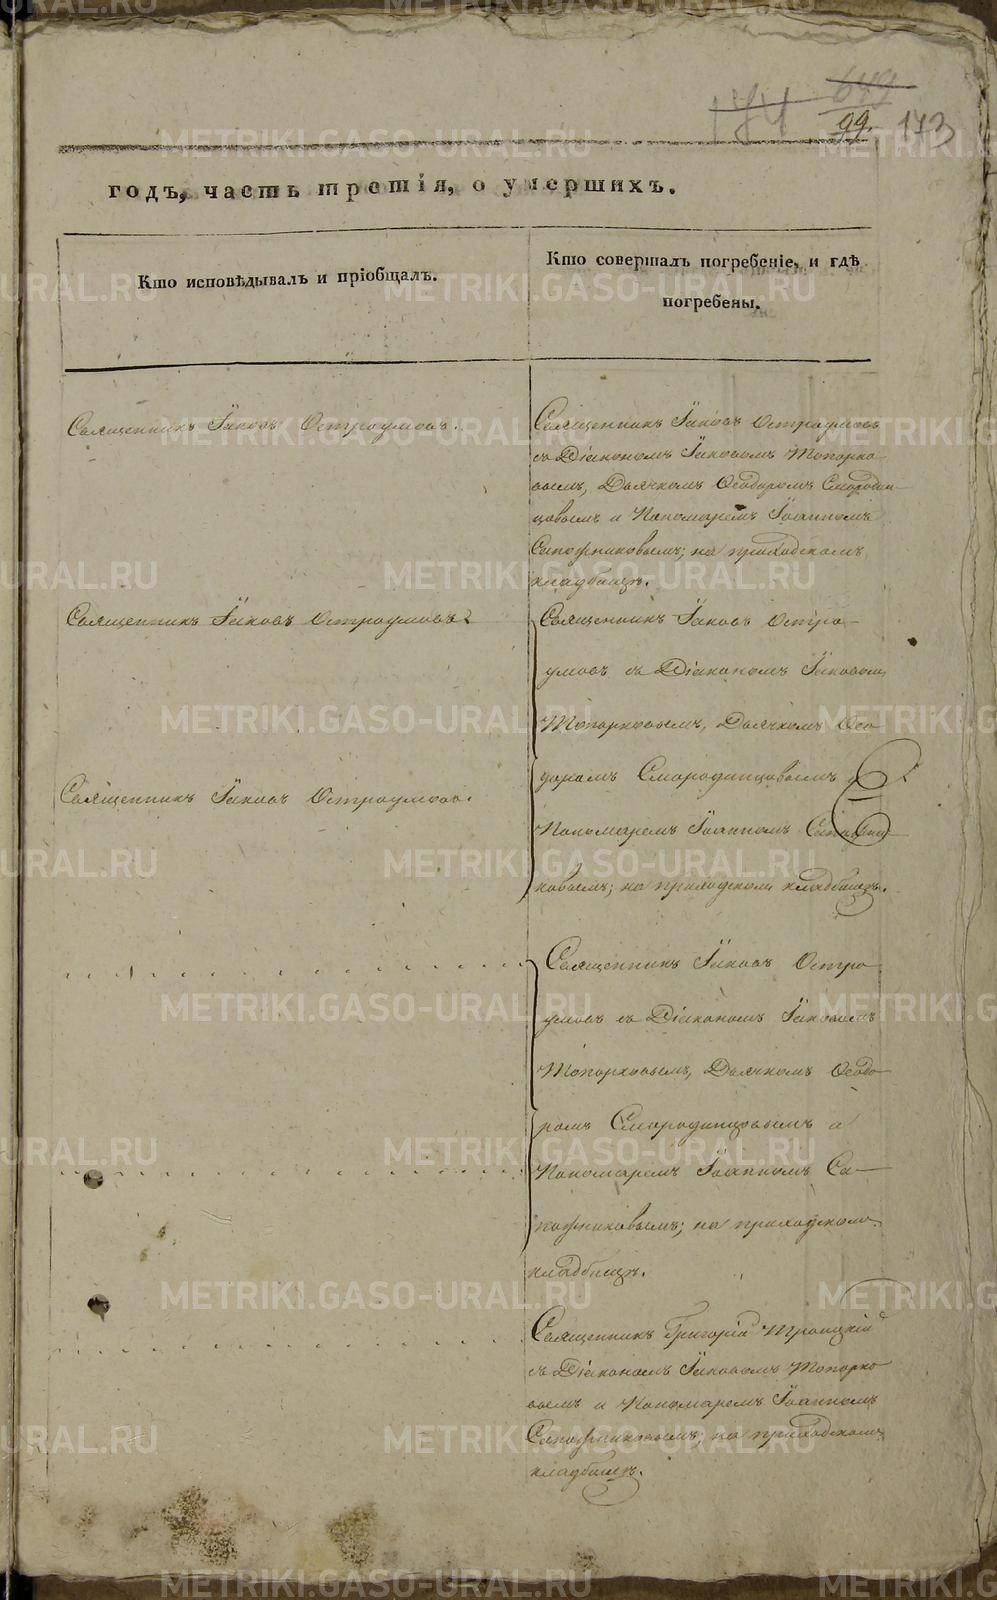 174 649
99. 173
годъ, часть третія, о умершихъ.
Кто исповѣдывалъ и пріобщалъ.
Кто совершалъ погребеніе, и гдѣ
погребены.
Священникъ Іаковъ Остроумовъ.
Священникъ Іаковъ Остроумовъ
съ Діакономъ Іаковомъ Топорко-
вымъ, Дьячкомъ Ѳеодоромъ Смородин-
цовымъ и Пономаремъ Іоанномъ
Сапожниковымъ; на приходскомъ
кладбищѣ.
Священникъ Іаковъ Остроумовъ
Священникъ Іаковъ Остро-
умовъ съ Діакономъ Іаковомъ
Топорковымъ, Дьячкомъ Ѳео-
доромъ Смородинцовымъ и
Священникъ Іаковъ Остроумовъ.
Пономаремъ Іоанномъ Сапожни-
ковымъ; на приходскомъ кладбищѣ.
Священникъ Іаковъ Остро-
умовъ съ Діакономъ Іаковомъ
Топорковымъ, Дьячкомъ Ѳеодо-
ромъ Смородинцовымъ и
Пономаремъ Іоанномъ Са-
пожниковымъ; на приходскомъ
кладбищѣ.
Священникъ Григорій Троицкій
съ Діакономъ Іаковомъ Топорко-
вымъ и Пономаремъ Іоанномъ
Сапожниковымъ; на приходскомъ
кладбищѣ.
METRIKI.GASO-URAL.RU